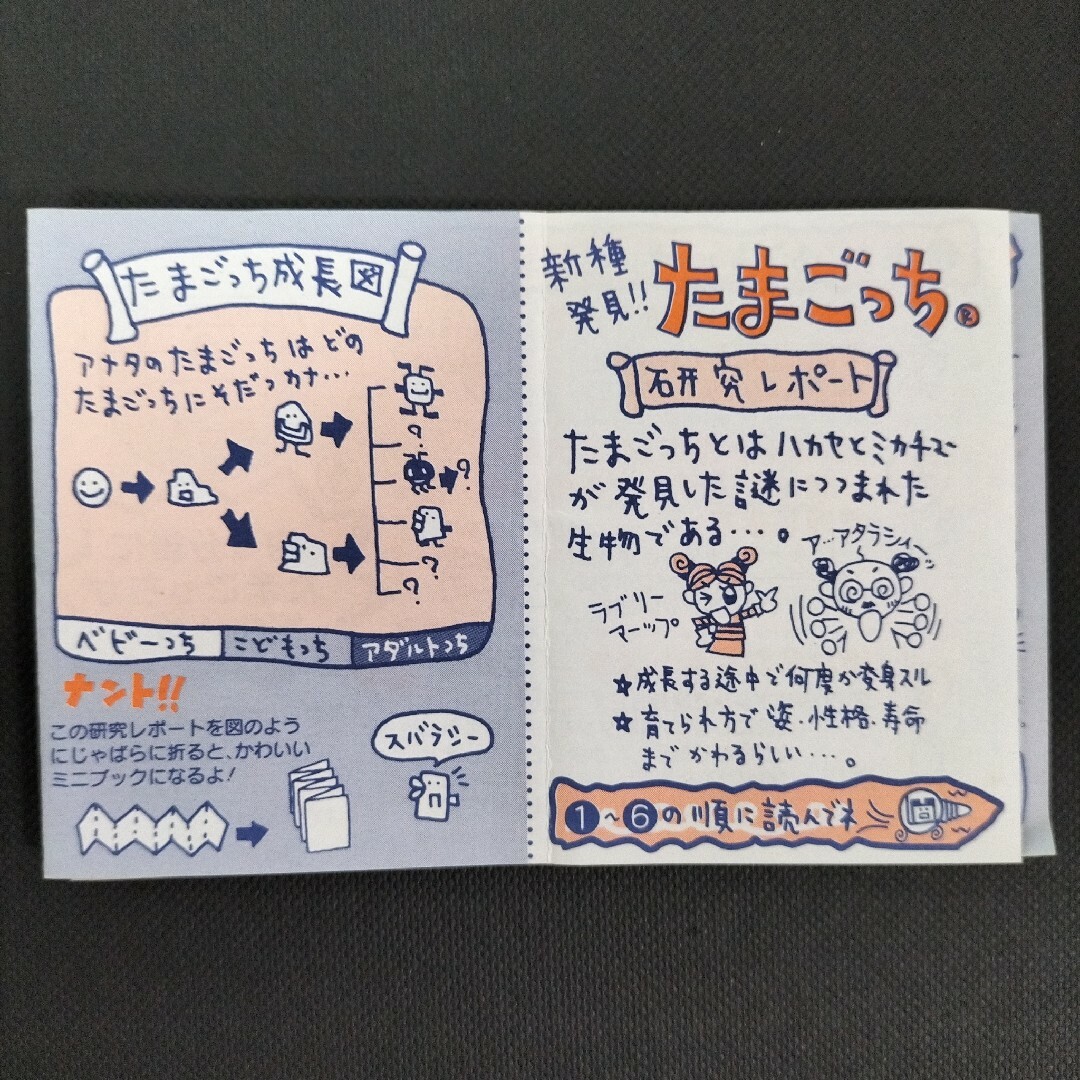 たまごっち成長図
アナタのたまごっちはどの
たまごっちにそだつカナ…
?
?
?
?
ベビーっち
こどもっち
アダルトっち
ナント!!
この研究レポートを図のよう
にじゃばらに折ると、かわいい
ミニブックになるよ!
スバラシー
新種
発見!!
たまごっち®
研究レポート
たまごっちとはハカセとミカチュー
が発見した謎につつまれた
生物である…。
ア…アタラシィー
ラブリー
マーップ
☆成長する途中で何度か変身スル
☆育てられ方で姿・性格・寿命
までかわるらしい…。
❶~❻の順に読んでネ